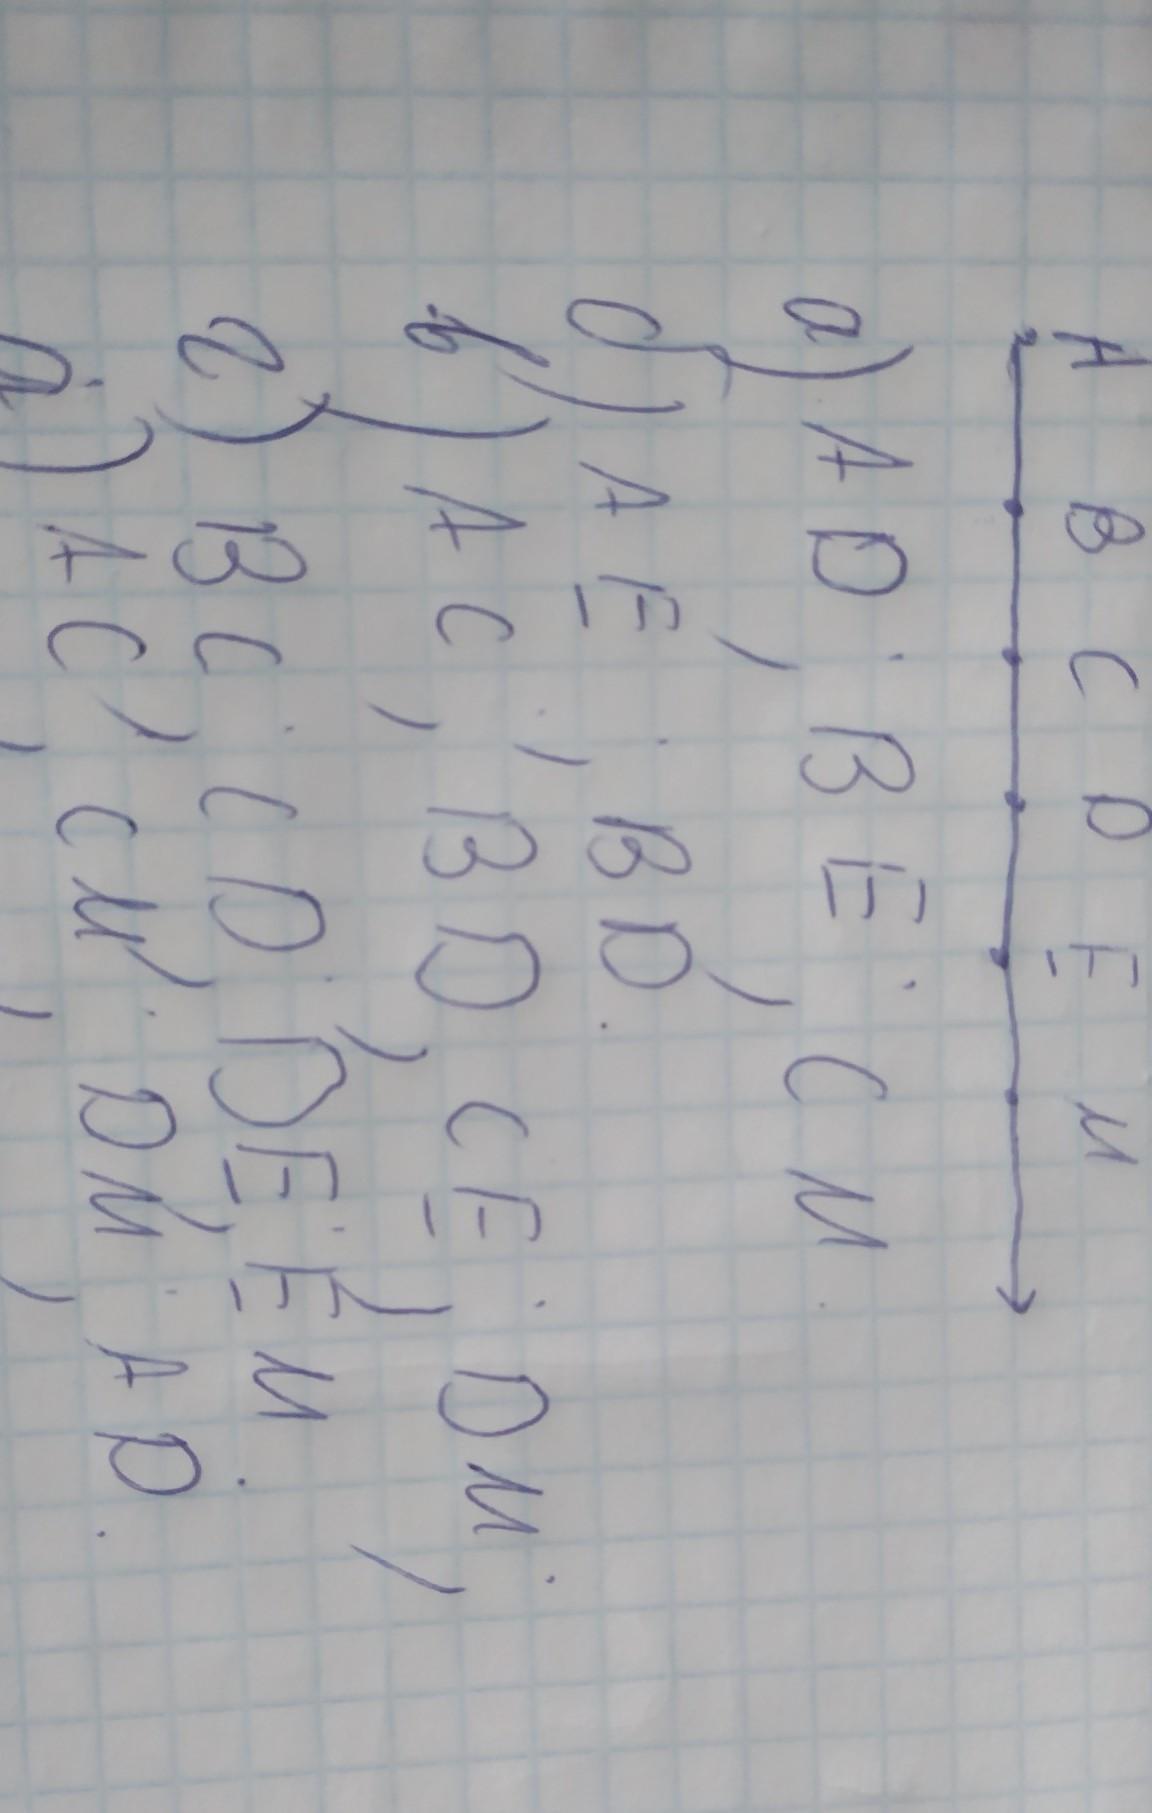 A B C D E M
а) AD; BE; CM.
б) AE; BD.
в) AC; BD; CE; DM;
г) BC; CD; DE; EM.
д) AC; CM; DM; AD.